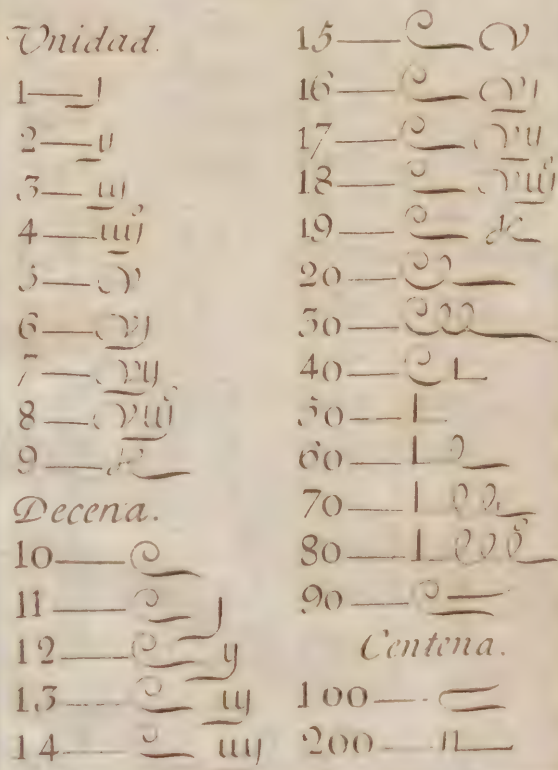 Unidad.
1 — j
2 — ij
3 — iij
4 — iiij
5 — v
6 — vj
7 — vij
8 — viij
9 — ix
Decena.
10 — x
11 — x j
12 — x ij
13 — x iij
14 — x iiij
15 — x v
16 — x vj
17 — x vij
18 — x viij
19 — x ix
20 — xx
30 — xxx
40 — xL
50 — L
60 — Lx
70 — Lxx
80 — Lxxx
90 — xc
Centena.
100 — c
200 —